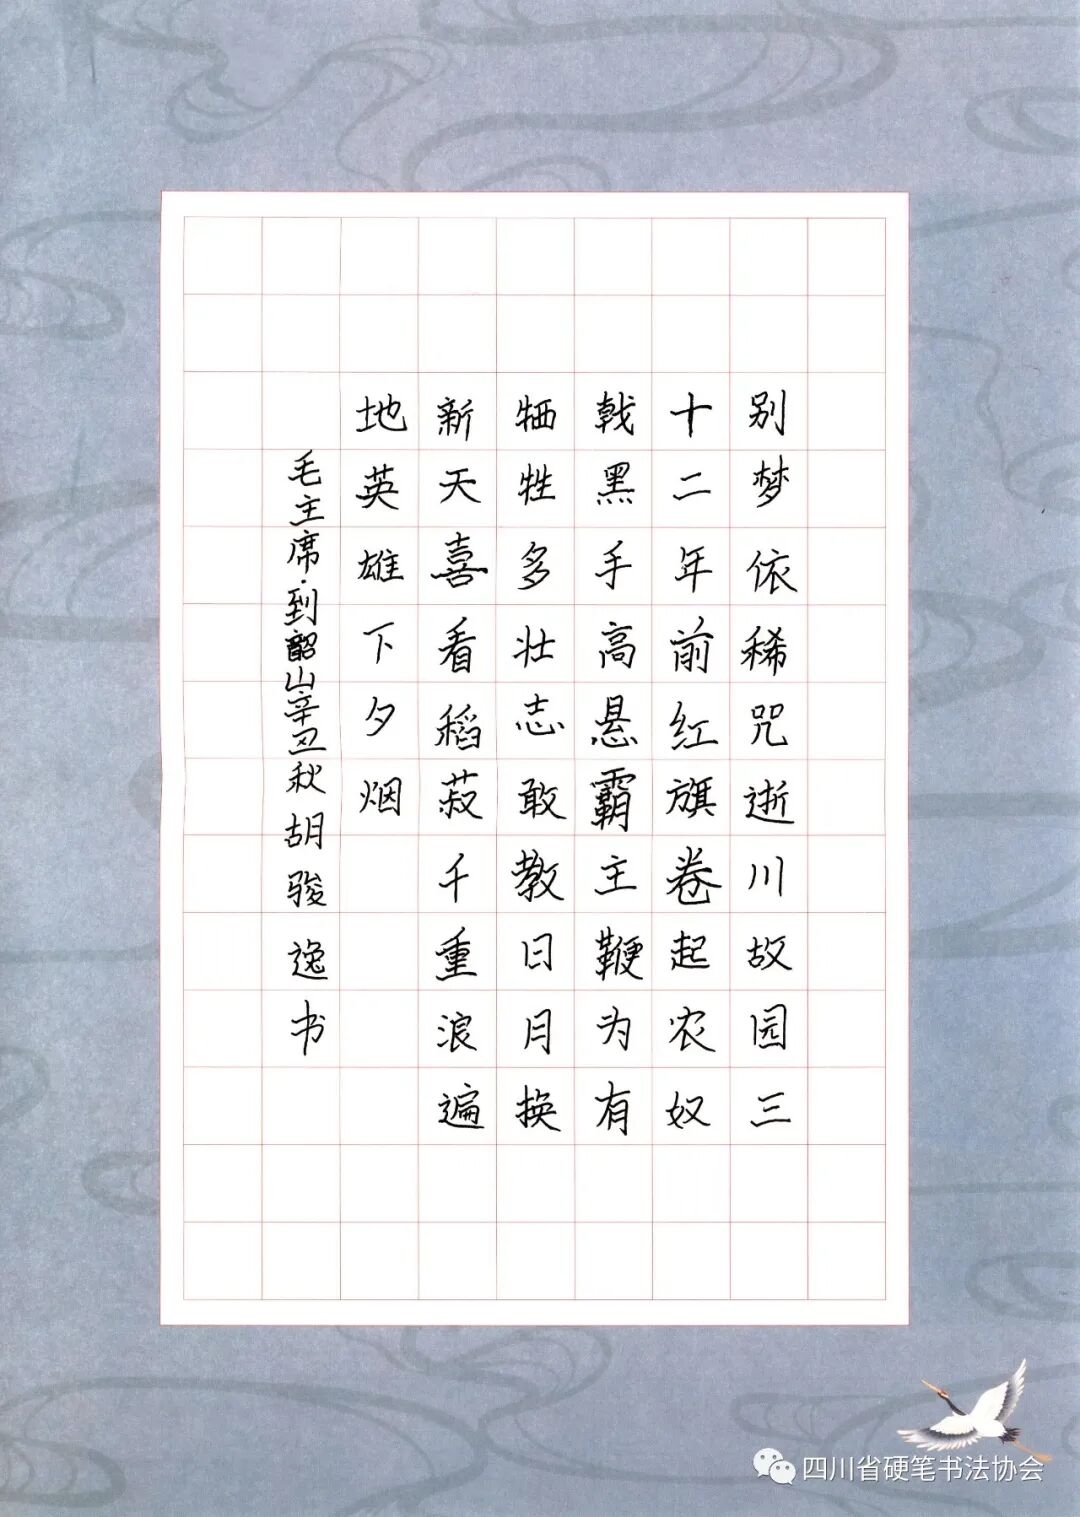 别梦依稀咒逝川故园三
十二年前红旗卷起农奴
戟黑手高悬霸主鞭为有
牺牲多壮志敢教日月换
新天喜看稻菽千重浪遍
地英雄下夕烟
毛主席·到韶山辛丑秋胡骏逸书
四川省硬笔书法协会